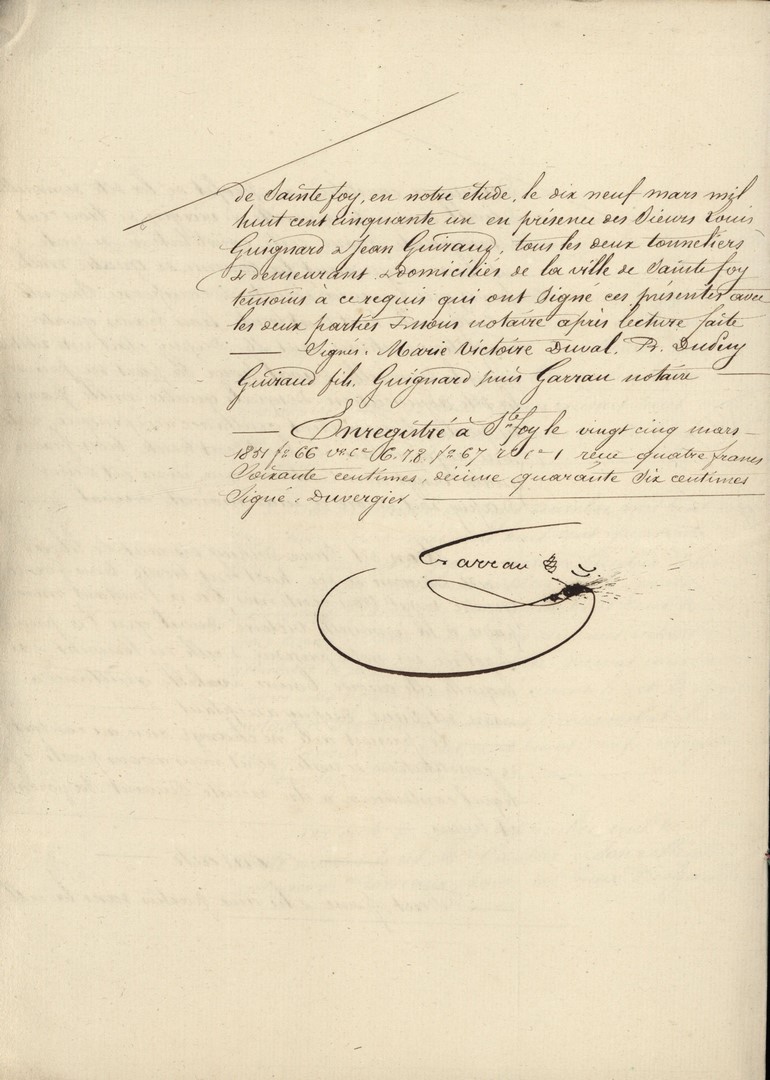 de Sainte foy, en notre étude, le dix neuf mars mil
huit cent cinquante un en présence des Sieurs Louis
Guignard & Jean Guiraud, tous les deux tonneliers
& demeurant & domiciliés de la ville de Sainte foy
témoins à ce requis qui ont signé ces présentes avec
les deux parties & nous notaire après lecture faite
— Signés. Marie Victoire Duval. P. Dupuy
Guiraud fils. Guignard puis Garrau notaire —
— Enregistré à Ste foy le vingt cinq mars
1851 fo 66 vo Ce 6.7.8. fo 67 ro Ce 1 reçu quatre francs
soixante centimes, décime quarante six centimes
Signé. Duvergier —
Garrau